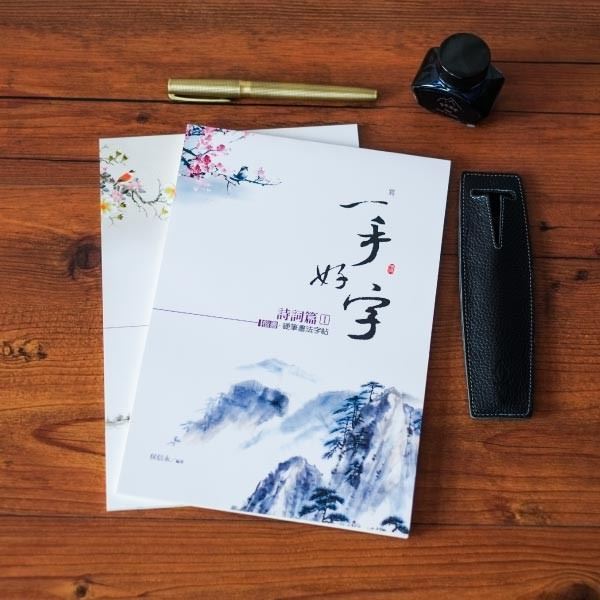 寫
一手
好字
詩詞篇 II
楷書・硬筆書法字帖
侯信永／編著